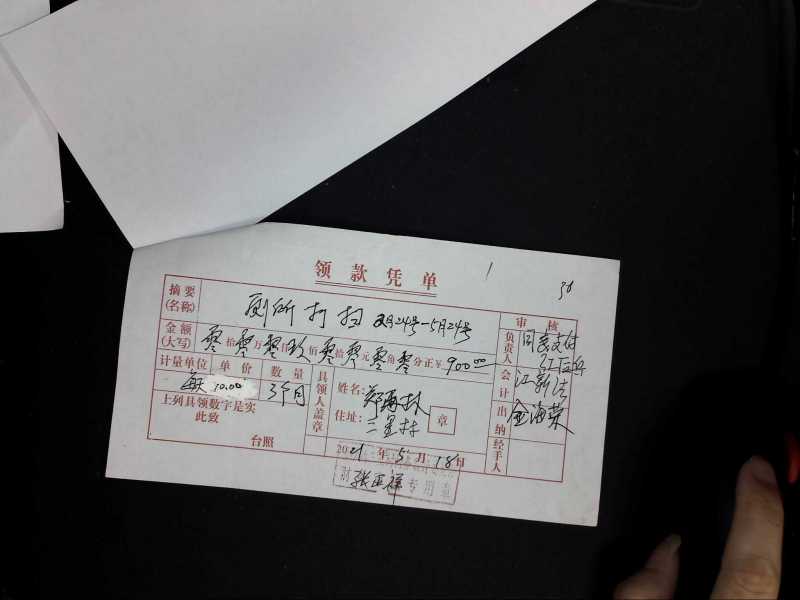 领款凭单
摘要(名称) 厕所打扫 2月24号-5月24号
审核
金额(大写) 零拾零万零仟玖佰零拾零元零角零分正 ¥900.00
负责人 同意支付
计量单位 单价 数量
每天 10.00 3个月
会计 江新法
出纳 金海荣
经手人
上列具领数字是实
此致
台照
具领人盖章
姓名:
住址: 三星村
章
2021年5月18日
专用章